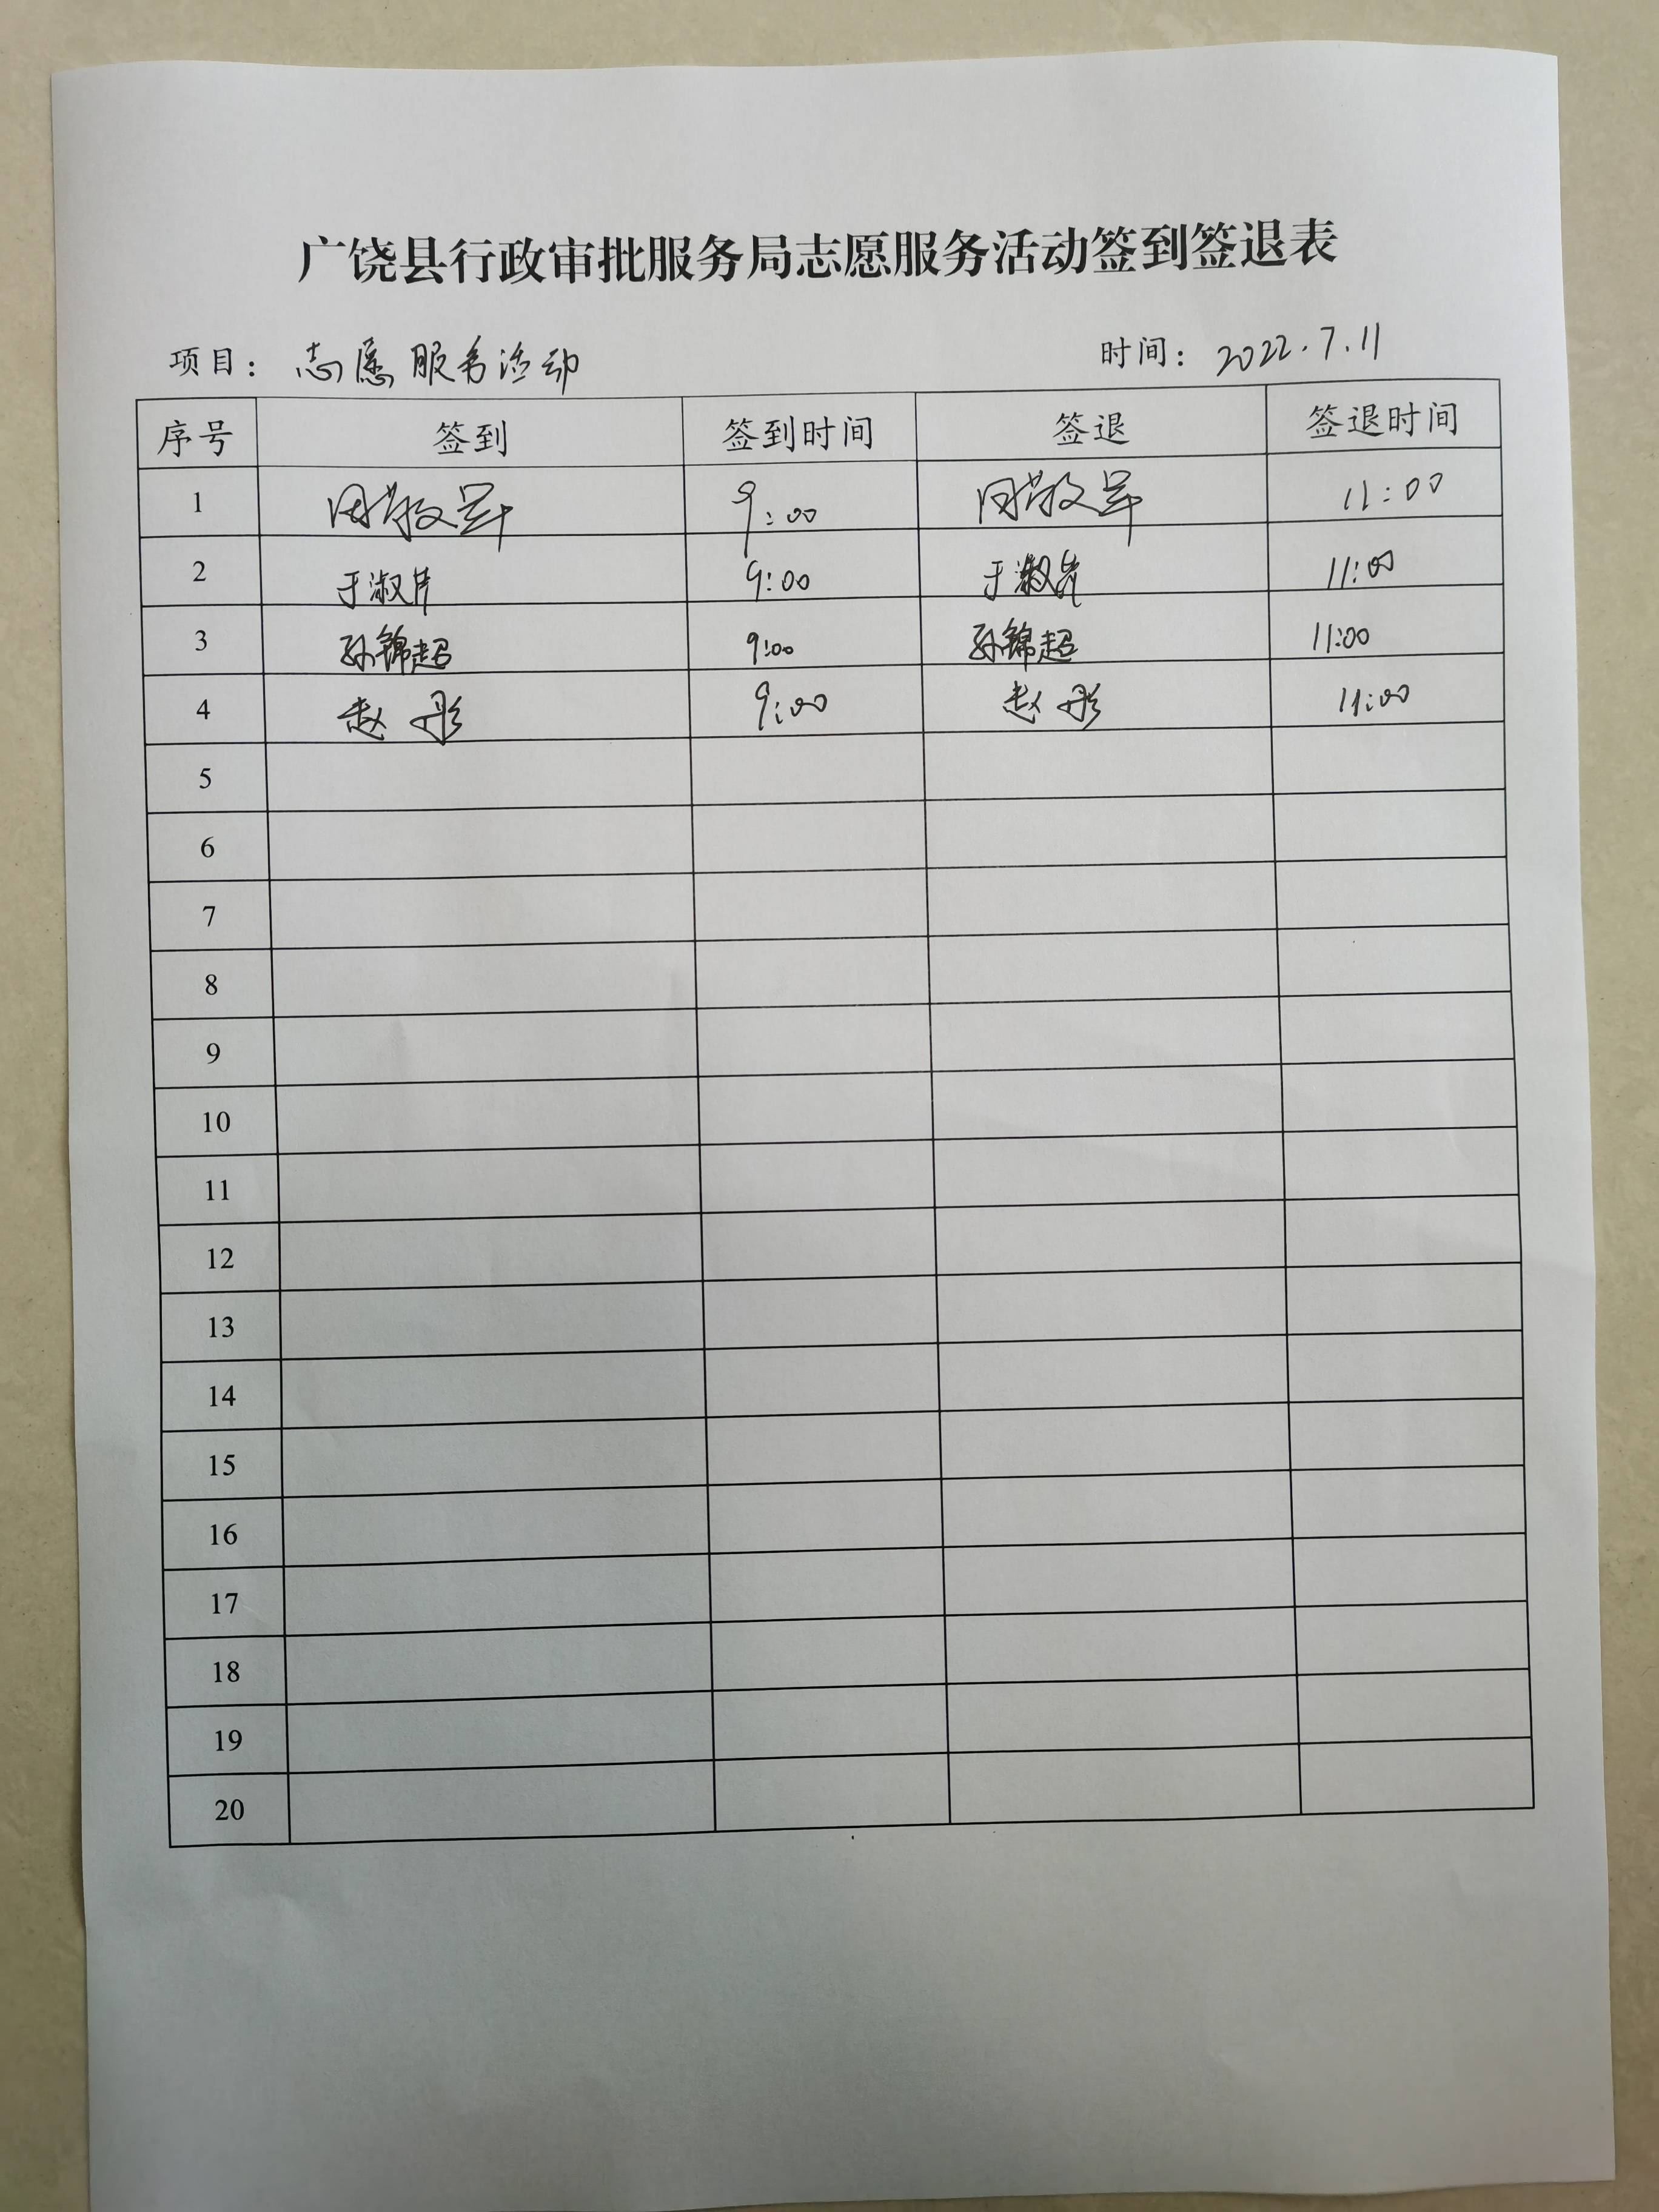 广饶县行政审批服务局志愿服务活动签到签退表
项目：志愿服务活动 时间：2022.7.11
序号 签到 签到时间 签退 签退时间
1 9:00 11:00
2 于淑 9:00 于淑 11:00
3 孙锦超 9:00 孙锦超 11:00
4 赵彤 9:00 赵彤 11:00
5
6
7
8
9
10
11
12
13
14
15
16
17
18
19
20